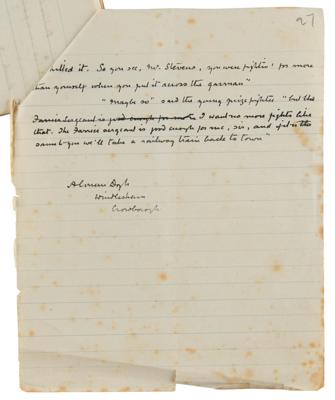 27
ruled it. So you see, Mr. Stevens, you were fightin' for more
than yourself when you put it across the gasman"
"Maybe so" said the young prize fighter "but the
Farrier Sergeant is good enough for me. I want no more fights like
that. The Farrier sergeant is good enough for me, sir, and if it is the
same to you we'll take a railway train back to town"
A Conan Doyle
Windlesham
Crowborough